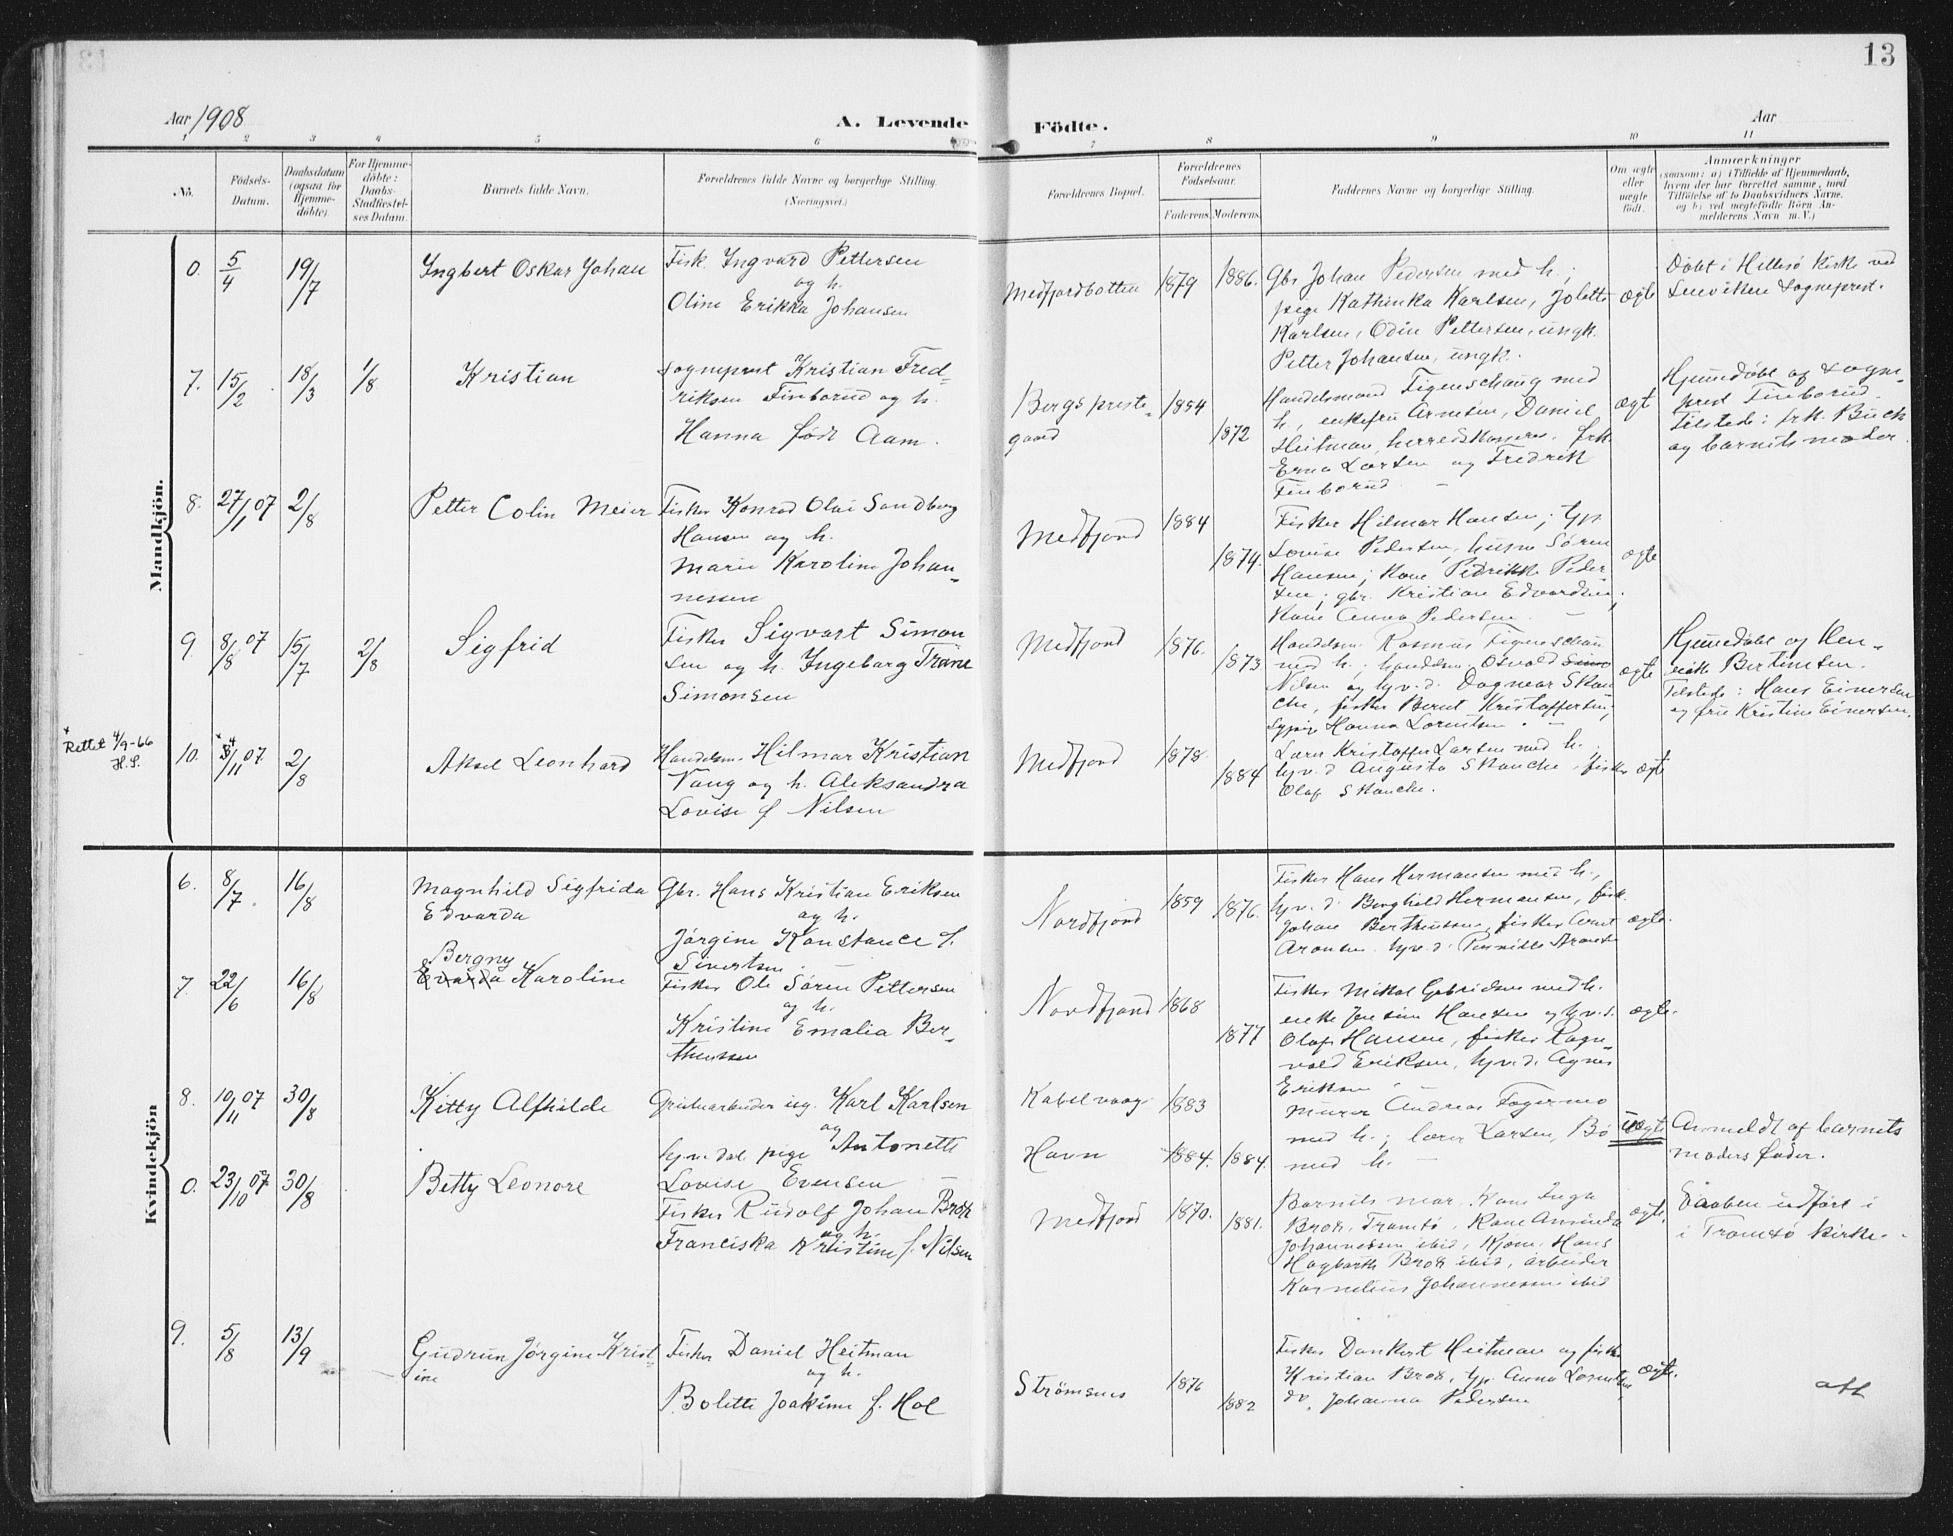 13
Aar 1908
A. Levende Födte.
Aar
1 2 3 4 5 6 7 8 9 10 11
No.
Födsels-Datum.
Daabsdatum (ogsaa for Hjemme-döbte).
For Hjemme-döbte: Daabs-Stadfæstel-ses Datum.
Barnets fulde Navn.
Forældrenes fulde Navne og borgerlige Stilling. (Næringsvei.)
Forældrenes Bopæl.
Forældrenes Födselsaar.
Faderens. Moderens.
Faddernes Navne og borgerlige Stilling.
Om ægte eller uægte födt.
Anmærkninger
(saasom: a) i Tilfælde af Hjemmedaab,
hvem der har forrettet samme, med
Tilföielse af to Daabsvidners Navne,
og b) ved uægtefödte Börn An-
melderens Navn m. V.)
Mandkjön.
0. 5/4 19/7 Ingbert Oskar Johan
Fisk. Ingvard Pettersen
og h.
Oline Erikka Johansen
Medfjordbotten 1879 1886.
Gbr Johan Pedersen med h.;
pige Kathinka Karlsen, Jolette
Karlsen, Odin Pettersen, ungk.
Petter Johansen, ungk.
ægte
Döbt i Hillesö Kirke ved
Lenvikens Sogneprest.
7. 15/2 18/3 1/8 Kristian
Sogneprest Kristian Fred-
riksen Finborud og h.
Hanna født Aam.
Bergs preste-
gaard
1854 1872
Handelsmand Figenschaug med
h, enkefru Arnesen, Daniel
Heitman, herredskasserer, frk.
Erna Larsen og Fredrik
Finborud.
ægt
Hjemdøbt af Sogne-
prest Finborud.
Tilstede: frk. Buck
og barnets moder
8. 27/1 07 2/8 Petter Colin Meier
Fisker Konrad Olai Sandberg
Hansen og h.
Marie Karoline Johan-
nessen
Medfjord 1884 1874.
Fisker Hilmar Hansen; tjp.
Lovise Pedersen, husm Sören
Hansen; Kone Pedrikke Peder-
sen; gbr. Kristian Edvardsen,
Kone Anna Pedersen.
ægte
9. 8/8 07 15/7 2/8 Sigfrid
Fisker Sigvart Simon
sen og h. Ingeborg Tråne
Simonsen
Medfjord 1876. 1873
Handelsm. Rasmus Figenschau
med h.; handelsm. Osvald
Nilsen og hv. d. Dagmar Skan
che, fisker Bernt Kristoffersen;
Hanna Lorentsen.
ægte
Hjemdøbt af Hen-
rikke Bertinsen.
Tilstede: Hans Einersen
og fru Kristine Einersen.
x Rettet 4/9-66
H.S.
10. 3/11 07. 2/8 Aksel Leonhard
Handelsm. Hilmar Kristian
Vang og h. Aleksandra
Lovise f Nilsen
Medfjord 1878. 1884
Lærer Kristoffer Larsen med h.
hv. d Augusta Skanche, fisker
Olaf Skanche.
ægte
Kvindekjön
6. 8/7. 16/8 Magnhild Sigfrida
Edvarda
Gbr. Hans Kristian Eriksen
og h.
Jørgine Konstance f.
Sivertsen.
Nordfjord 1859 1876.
Fisker Hans Hermansen med h.,
hv. d. Borghild Hermansen, fisk.
Johan Berthinsen, fisker Arnt
Aronsen, hv. d. Pernille Aronse
ægte.
7. 22/6 16/8 Bergny
Evarda Karoline
Fisker Ole Sören Pettersen
og h.
Kristine Emalia Ber-
thinsen
Nordfjord 1868 1877
Fisker Mikal Gabrielsen med h.
enke Jensine Hansen og hv. d.
Olaf Hansen, fisker Ragn-
vald Eriksen, hv. d. Agnes
Eriksen
ægte.
8. 10/11 07 30/8 Kitty Alfhilde
Grubearbeider ug. Karl Karlsen
og
hjv. dal. pige Antonette
Lovise Evensen
Kabelvaag 1883
Havn 1884. 1884.
Murer Andreas Fagermo
med h.; lærer Larsen, Bö
med h.
uægte
Anmeldt af barnets
moders fader.
0. 23/10 07 30/8 Betty Leonore
Fisker Rudolf Johan Brox
og h.
Franciska Kristine f. Nilsen
Medfjord 1870. 1881.
Barnets mor. Kone Inga
Brox, Tromsö, Kone Amanda
Johannessen ibid, Kjöm. Hans
Hagbarth Brox ibid, arbeider
Kornelius Johannessen ibid
ægte.
Daaben udført i
i Tromsö kirke.
9. 5/8 13/9 Gudrun Jørgine Krist-
ine
Fisker Daniel Heitman
og h.
Bolette Joakime f. Hol
Strömsnes 1876 1882
Fisker Dankert Heitman og fisker
Kristian Brox, tjp. Anna Lorentsen,
do. Johanna Pedersen
ægte.
att